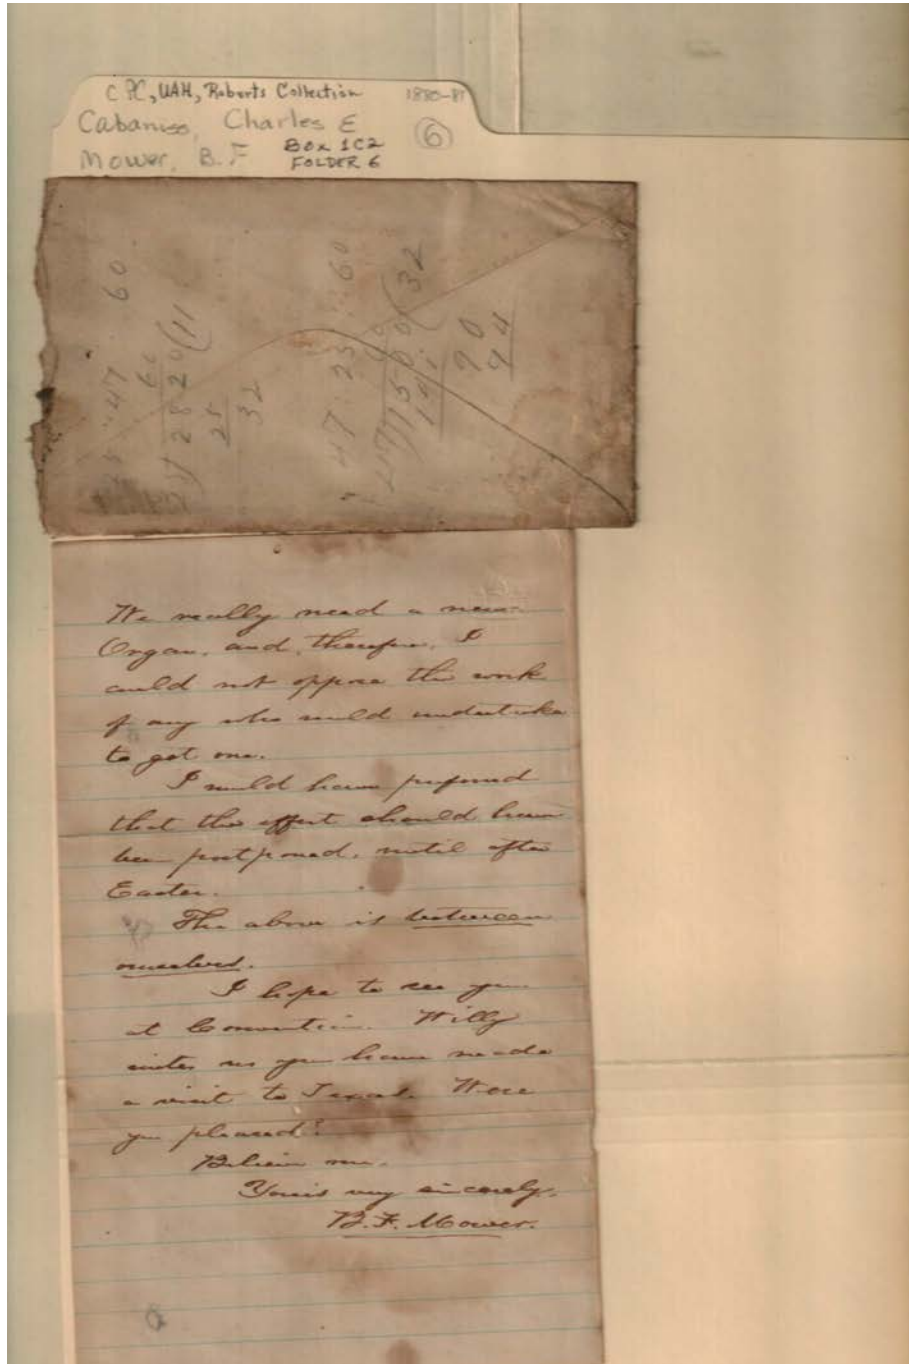 C PC, UAH, Roberts Collection 1880-81
Cabaniss, Charles E
6
Mower, B. F BOX 1C2
FOLDER 6
25 : 47 : 60
60
2820(11
25
32
47 : 25 : : 60
60
47)1500(32
141
90
94
We really need a new
Organ, and, therefore, I
could not oppose the work
of any who would undertake
to get one.
I would have preferred
that the effort should have
been postponed, until after
Easter.
The above is between
ourselves.
I hope to see you
at Convention. Willy
writes us you have made
a visit to Texas. Were
you pleased?
Believe me,
Yours very sincerely,
B. F. Mower.